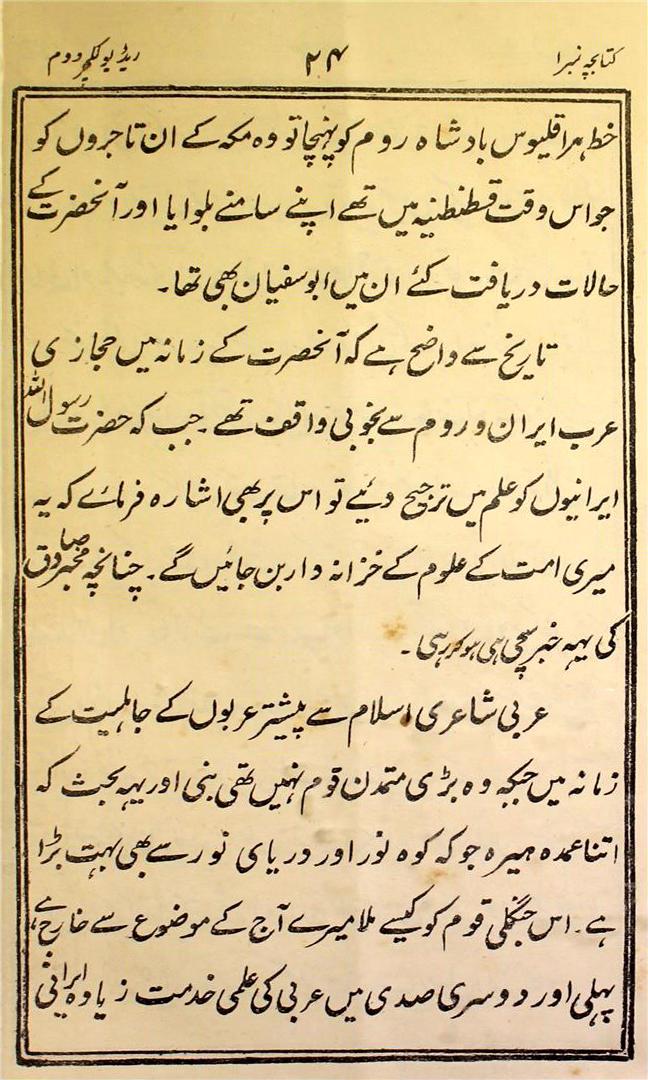 کتابچہ نمبر۱
۲۴
ریڈیو لکچر دوم
خط ہراقلیوس بادشاہ روم کو پہنچا تو وہ مکہ کے ان تاجروں کو
جو اس وقت قسطنطنیہ میں تھے اپنے سامنے بلوایا اور آنحضرت کے
حالات دریافت کئے ان میں ابوسفیان بھی تھا۔
تاریخ سے واضح ہے کہ آنحضرت کے زمانہ میں حجازی
عرب ایران و روم سے بخوبی واقف تھے۔ جب کہ حضرت رسول اللہ
ایرانیوں کو علم میں ترجیح دیئے تو اس پر بھی اشارہ فرمائے کہ یہ
میری امت کے علوم کے خزانہ دار بن جائیں گے۔ چنانچہ مخبر صادق
کی یہہ خبر سچی ہی ہو کر رہی۔
عربی شاعری اسلام سے پیشتر عربوں کے جاہلیت کے
زمانہ میں جبکہ وہ بڑی متمدن قوم نہیں تھی بنی اور یہہ بحث کہ
اتنا عمدہ ہیرہ جو کہ کوہ نور اور دریای نور سے بھی بہت بڑا
ہے۔ اس جنگلی قوم کو کیسے ملا میرے آج کے موضوع سے خارج ہے،
پہلی اور دوسری صدی میں عربی کی علمی خدمت زیادہ ایرانی